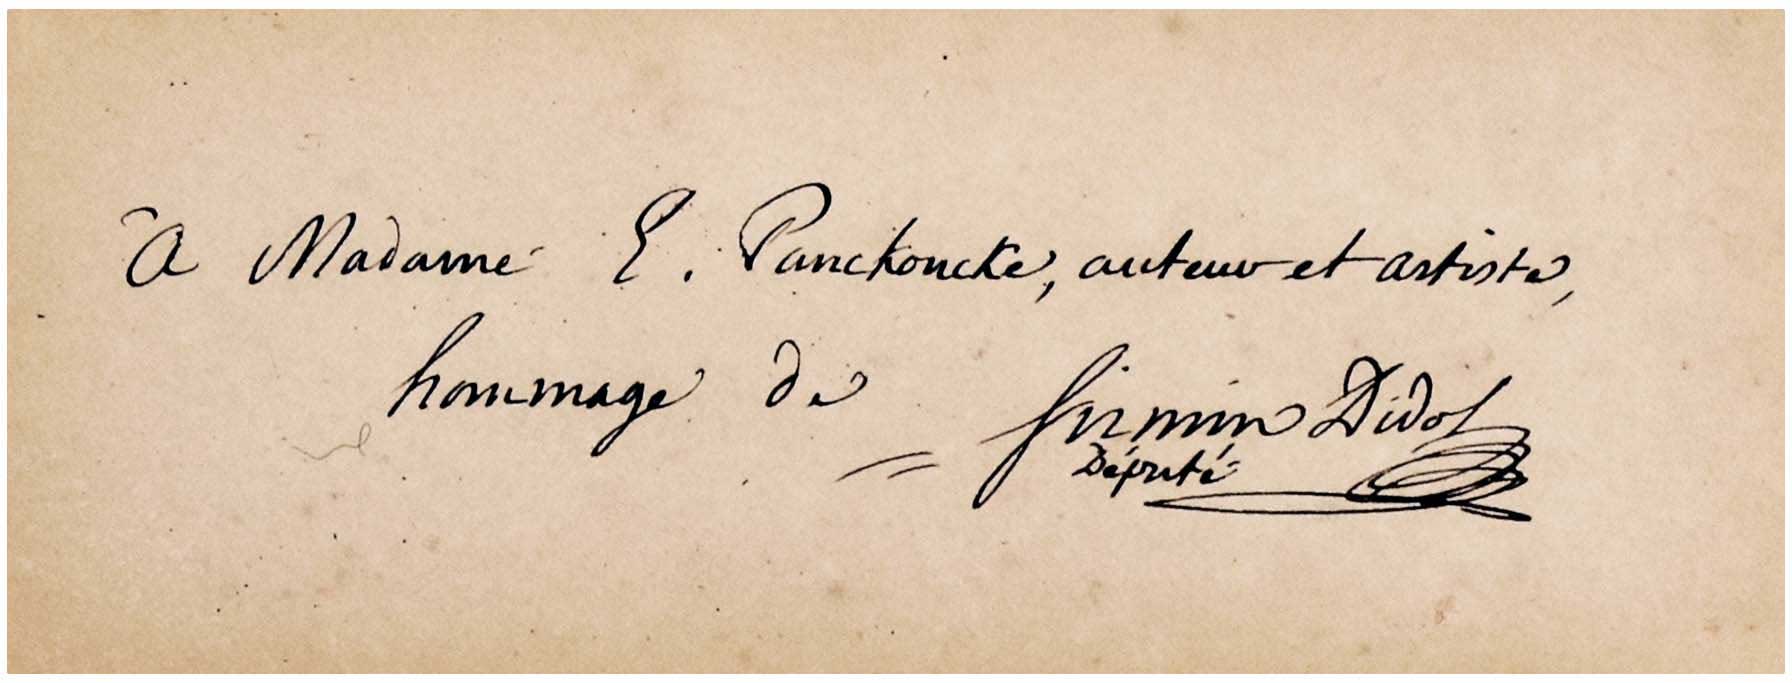 à Madame E. Panckoucke, auteur et artiste,
hommage de Firmin Didot
Député